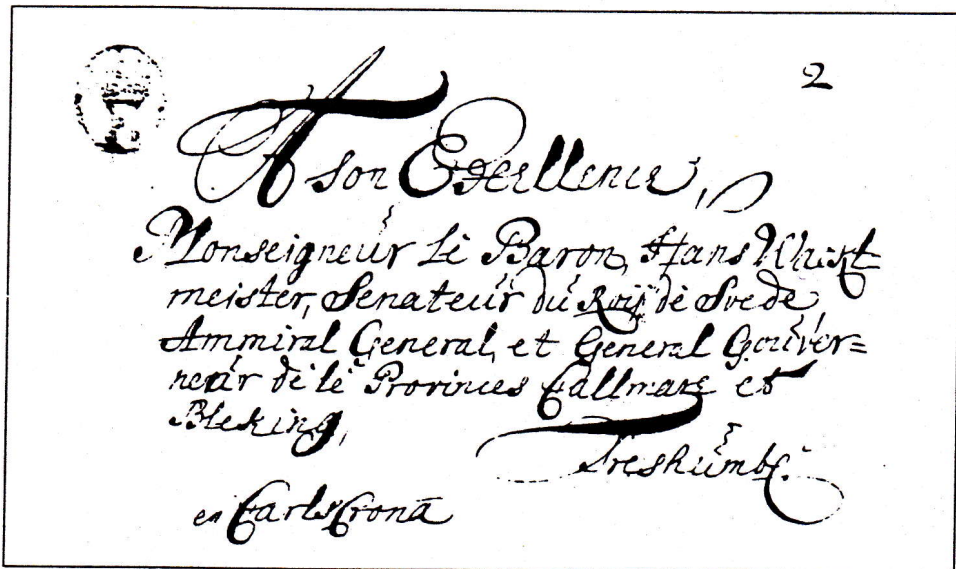 2
A son Excellence,
Monseigneur Le Baron, Hans Wacht-
meister, Senateur du Roij de Svede,
Ammiral General, et General Gouver=
neur de le Provinces Callmare et
Bleking,
Treshumbl:
en CarlsCrona